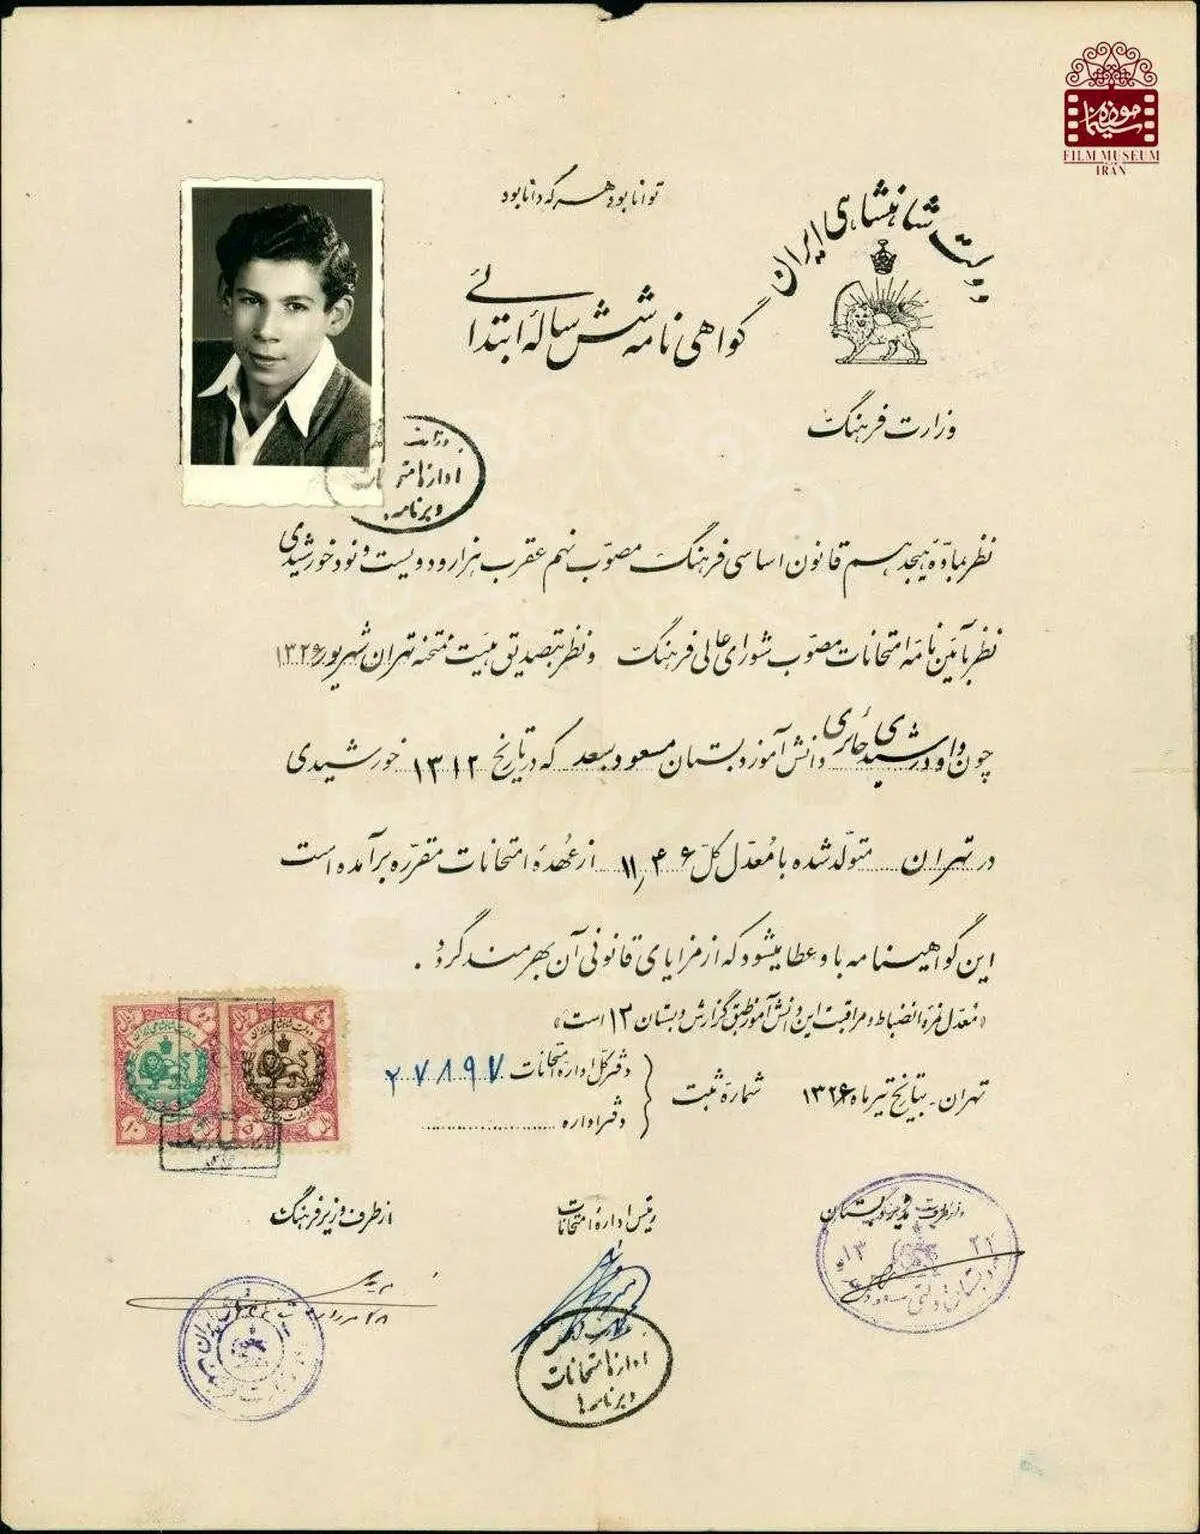 موزه سینما
FILM MUSEUM
IRAN
توانا بود هر که دانا بود
دولت شاهنشاهی ایران
گواهی نامه شش ساله ابتدائی
وزارت فرهنگ
وزارت
اداره امتحانات
و برنامه
نظر بمادّه هیجدهم قانون اساسی فرهنگ مصوّب نهم عقرب هزار و دویست و نود خورشیدی
نظر بآئین نامه امتحانات مصوّب شورای عالی فرهنگ و نظر بتصدیق هیئت ممتحنه تهران شهریور ۱۳۲۶
چون داود رشیدی حائری دانش آموز دبستان مسعود سعد که در تاریخ ۱۳۱۲ خورشیدی
در تهران متولّد شده با مُعدّل کلّ ۱۱٫۴۶ از عُهدهٔ امتحانات مقرّره برآمده است
این گواهینامه باو عطا میشود که از مزایای قانونی آن بهره‌مند گردد.
«مُعدّل نمره انضباط و مراقبت این دانش آموز طبق گزارش دبستان ۱۳ است»
تهران - بتاریخ تیر ماه شمارهٔ ثبت دفتر کلّ ادارهٔ امتحانات ۲۷۸۹۷
دفتر اداره
از طرف مدیر دبستان
رئیس ادارهٔ امتحانات
از طرف وزیر فرهنگ
۱۳ ۲۱
دبستان دولتی مسعود سعد
اداره امتحانات
و برنامه ها